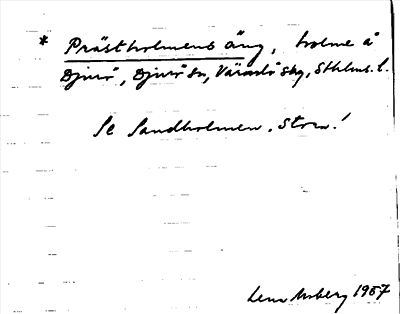 * Prästholmens äng, holme å
Djurö, Djurö sn, Värmdö skg, Sthlms. l.
Se Sandholmen, Stora!
1987